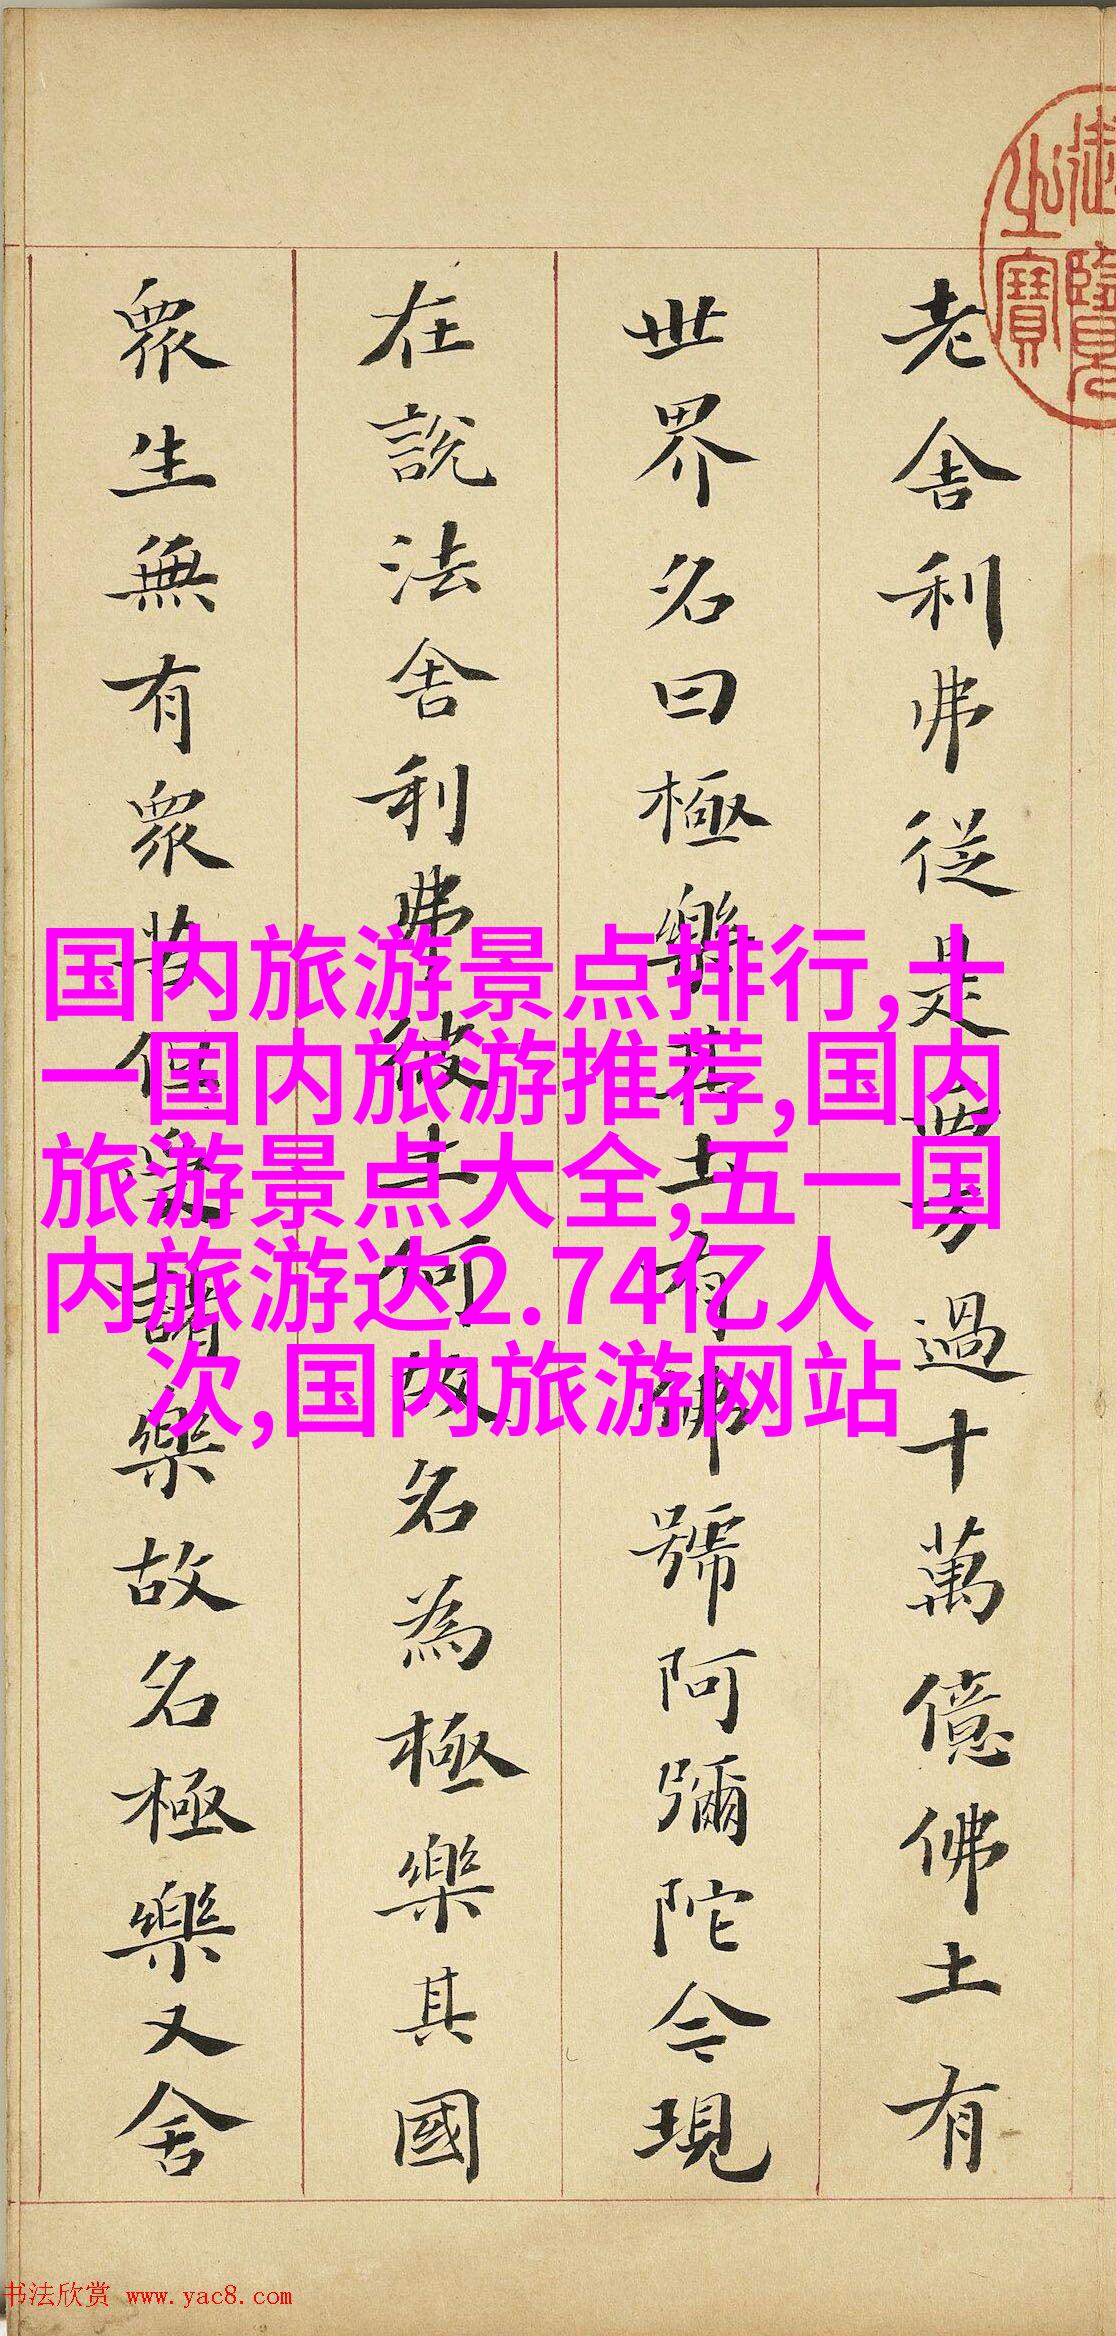 御覽
之寶
老舍利弗從是西方過十萬億佛土有
世界名曰極樂其土有佛號阿彌陀今現
在說法舍利弗彼土何故名為極樂其國
眾生無有眾苦但受諸樂故名極樂又舍
国内旅游景点排行,十
一国内旅游推荐,国内
旅游景点大全,五一国
内旅游达2.74亿人
次,国内旅游网站
书法欣赏 www.yac8.com